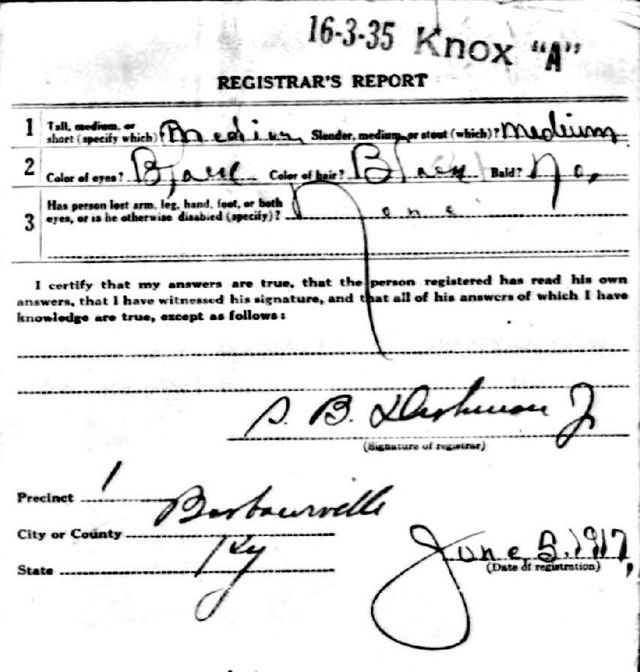 16-3-35 Knox "A"
REGISTRAR'S REPORT
1 Tall, medium, or short (specify which)? Medium Slender, medium, or stout (which)? medium
2 Color of eyes? Black Color of hair? Black Bald? No,
3 Has person lost arm, leg, hand, foot, or both eyes, or is he otherwise disabled (specify)? None
I certify that my answers are true, that the person registered has read his own
answers, that I have witnessed his signature, and that all of his answers of which I have
knowledge are true, except as follows:
S. B. Dishman Jr
(Signature of registrar)
Precinct 1
City or County Barbourville
State Ky
June 5. 1917,
(Date of registration)